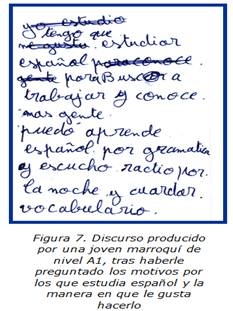 yo estudio
tengo que
me gusta. estudiar
español para conoce.
gente para Buscor a
trabajar y conoce.
mas gente.
puedo aprende
español. por gramatica
y escucho radio por.
la noche y cuardar.
vocabulario.
Figura 7. Discurso producido
por una joven marroquí de
nivel A1, tras haberle
preguntado los motivos por
los que estudia español y la
manera en que le gusta
hacerlo